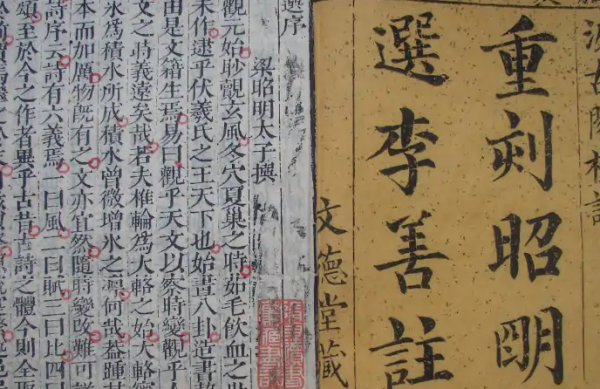 汲古閣校訂
重刻昭明
選李善註
文德堂藏
選序
梁昭明太子撰
觀元始眇覿玄風冬穴夏巢之時茹毛飲血之世
未作逮乎伏羲氏之王天下也始畫八卦造書契
由是文籍生焉易曰觀乎天文以察時變觀乎人
文之時義遠矣哉若夫椎輪為大輅之始大輅寧
氷為積水所成積水曾微增氷之凜何哉蓋踵其
本而加厲物既有之文亦宜然隨時變改難可詳
詩序云詩有六義焉一曰風二曰賦三曰比四曰
頌至於今之作者異乎古昔古詩之體今則全取